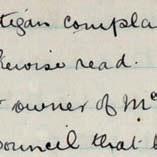 tigan compla
erwise read.
owner of Mc
ouncil that